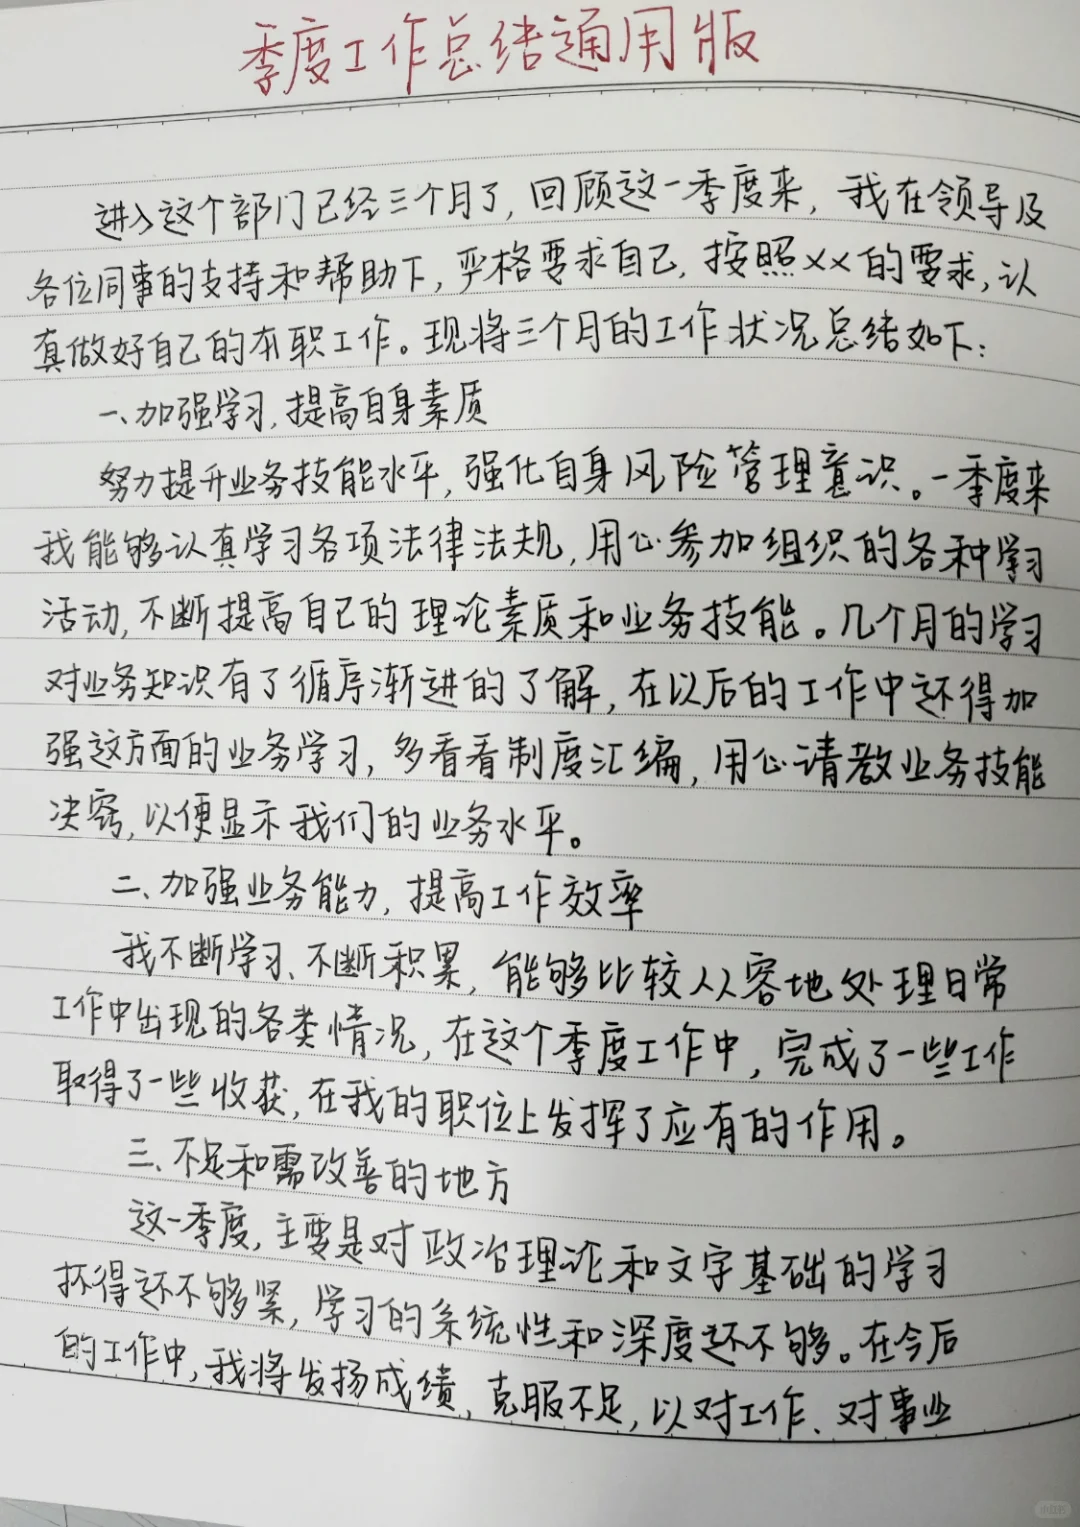 季度工作总结通用版
进入这个部门已经三个月了，回顾这一季度来，我在领导及
各位同事的支持和帮助下，严格要求自己，按照xx的要求，认
真做好自己的本职工作。现将三个月的工作状况总结如下：
一、加强学习，提高自身素质
努力提升业务技能水平，强化自身风险管理意识。一季度来
我能够认真学习各项法律法规，用心参加组织的各种学习
活动，不断提高自己的理论素质和业务技能。几个月的学习
对业务知识有了循序渐进的了解，在以后的工作中还得加
强这方面的业务学习，多看看制度汇编，用心请教业务技能
决窍，以便显示我们的业务水平。
二、加强业务能力，提高工作效率
我不断学习、不断积累，能够比较从容地处理日常
工作中出现的各类情况，在这个季度工作中，完成了一些工作
取得了一些收获，在我的职位上发挥了应有的作用。
三、不足和需改善的地方
这一季度，主要是对政治理论和文字基础的学习
抓得还不够紧，学习的系统性和深度还不够。在今后
的工作中，我将发扬成绩，克服不足，以对工作、对事业
小红书